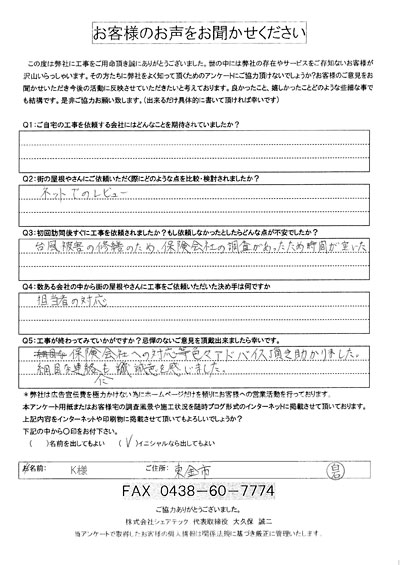 お客様のお声をお聞かせください
この度は弊社に工事をご用命頂き誠にありがとうございました。世の中には弊社の存在やサービスをご存知ないお客様が
沢山いらっしゃいます。その方たちに弊社をよく知って頂くためのアンケートにご協力頂けないでしょうか?お客様のご意見をお
聞かせいただき今後の活動に反映させていただきたいと考えております。良かったこと、嬉しかったことどのような些細な事で
も結構です。是非ご協力お願い致します。(出来るだけ具体的に書いて頂ければ幸いです)
Q1:ご自宅の工事を依頼する会社にはどんなことを期待されていましたか?
Q2:街の屋根やさんにご依頼いただく際にどのような点を比較・検討されましたか?
ネットでのレビュー
Q3:初回訪問後すぐに工事を依頼されましたか?もし依頼しなかったとしたらどんな点が不安でしたか?
台風被害の修繕のため、保険会社の調査があったため時間が空いた
Q4:数ある会社の中から街の屋根やさんに工事をご依頼いただいた決め手は何ですか
担当者の対応
Q5:工事が終わってみていかがですか?忌憚のないご意見を頂戴出来ましたら幸いです。
保険会社への対応等色々アドバイス頂き助かりました。
細目な連絡 に 誠意を感じました。
*弊社は広告宣伝費を極力かけない為にホームページだけを頼りにお客様への営業活動を行っております。
本アンケート用紙またはお客様宅の調査風景や施工状況を随時ブログ形式のインターネットに掲載させて頂いております。
上記内容をインターネットや印刷物に掲載させて頂いてもよろしいでしょうか?
下記の中から○印をお付下さい。
( )名前を出してもよい (✓)イニシャルなら出してもよい
お名前: K様 ご住所: 東金市
FAX 0438-60-7774
ご協力ありがとうございました。
株式会社シェアテック 代表取締役 大久保 誠二
当アンケートで取得したお客様の個人情報は関係法規に基づき厳正に管理いたします。